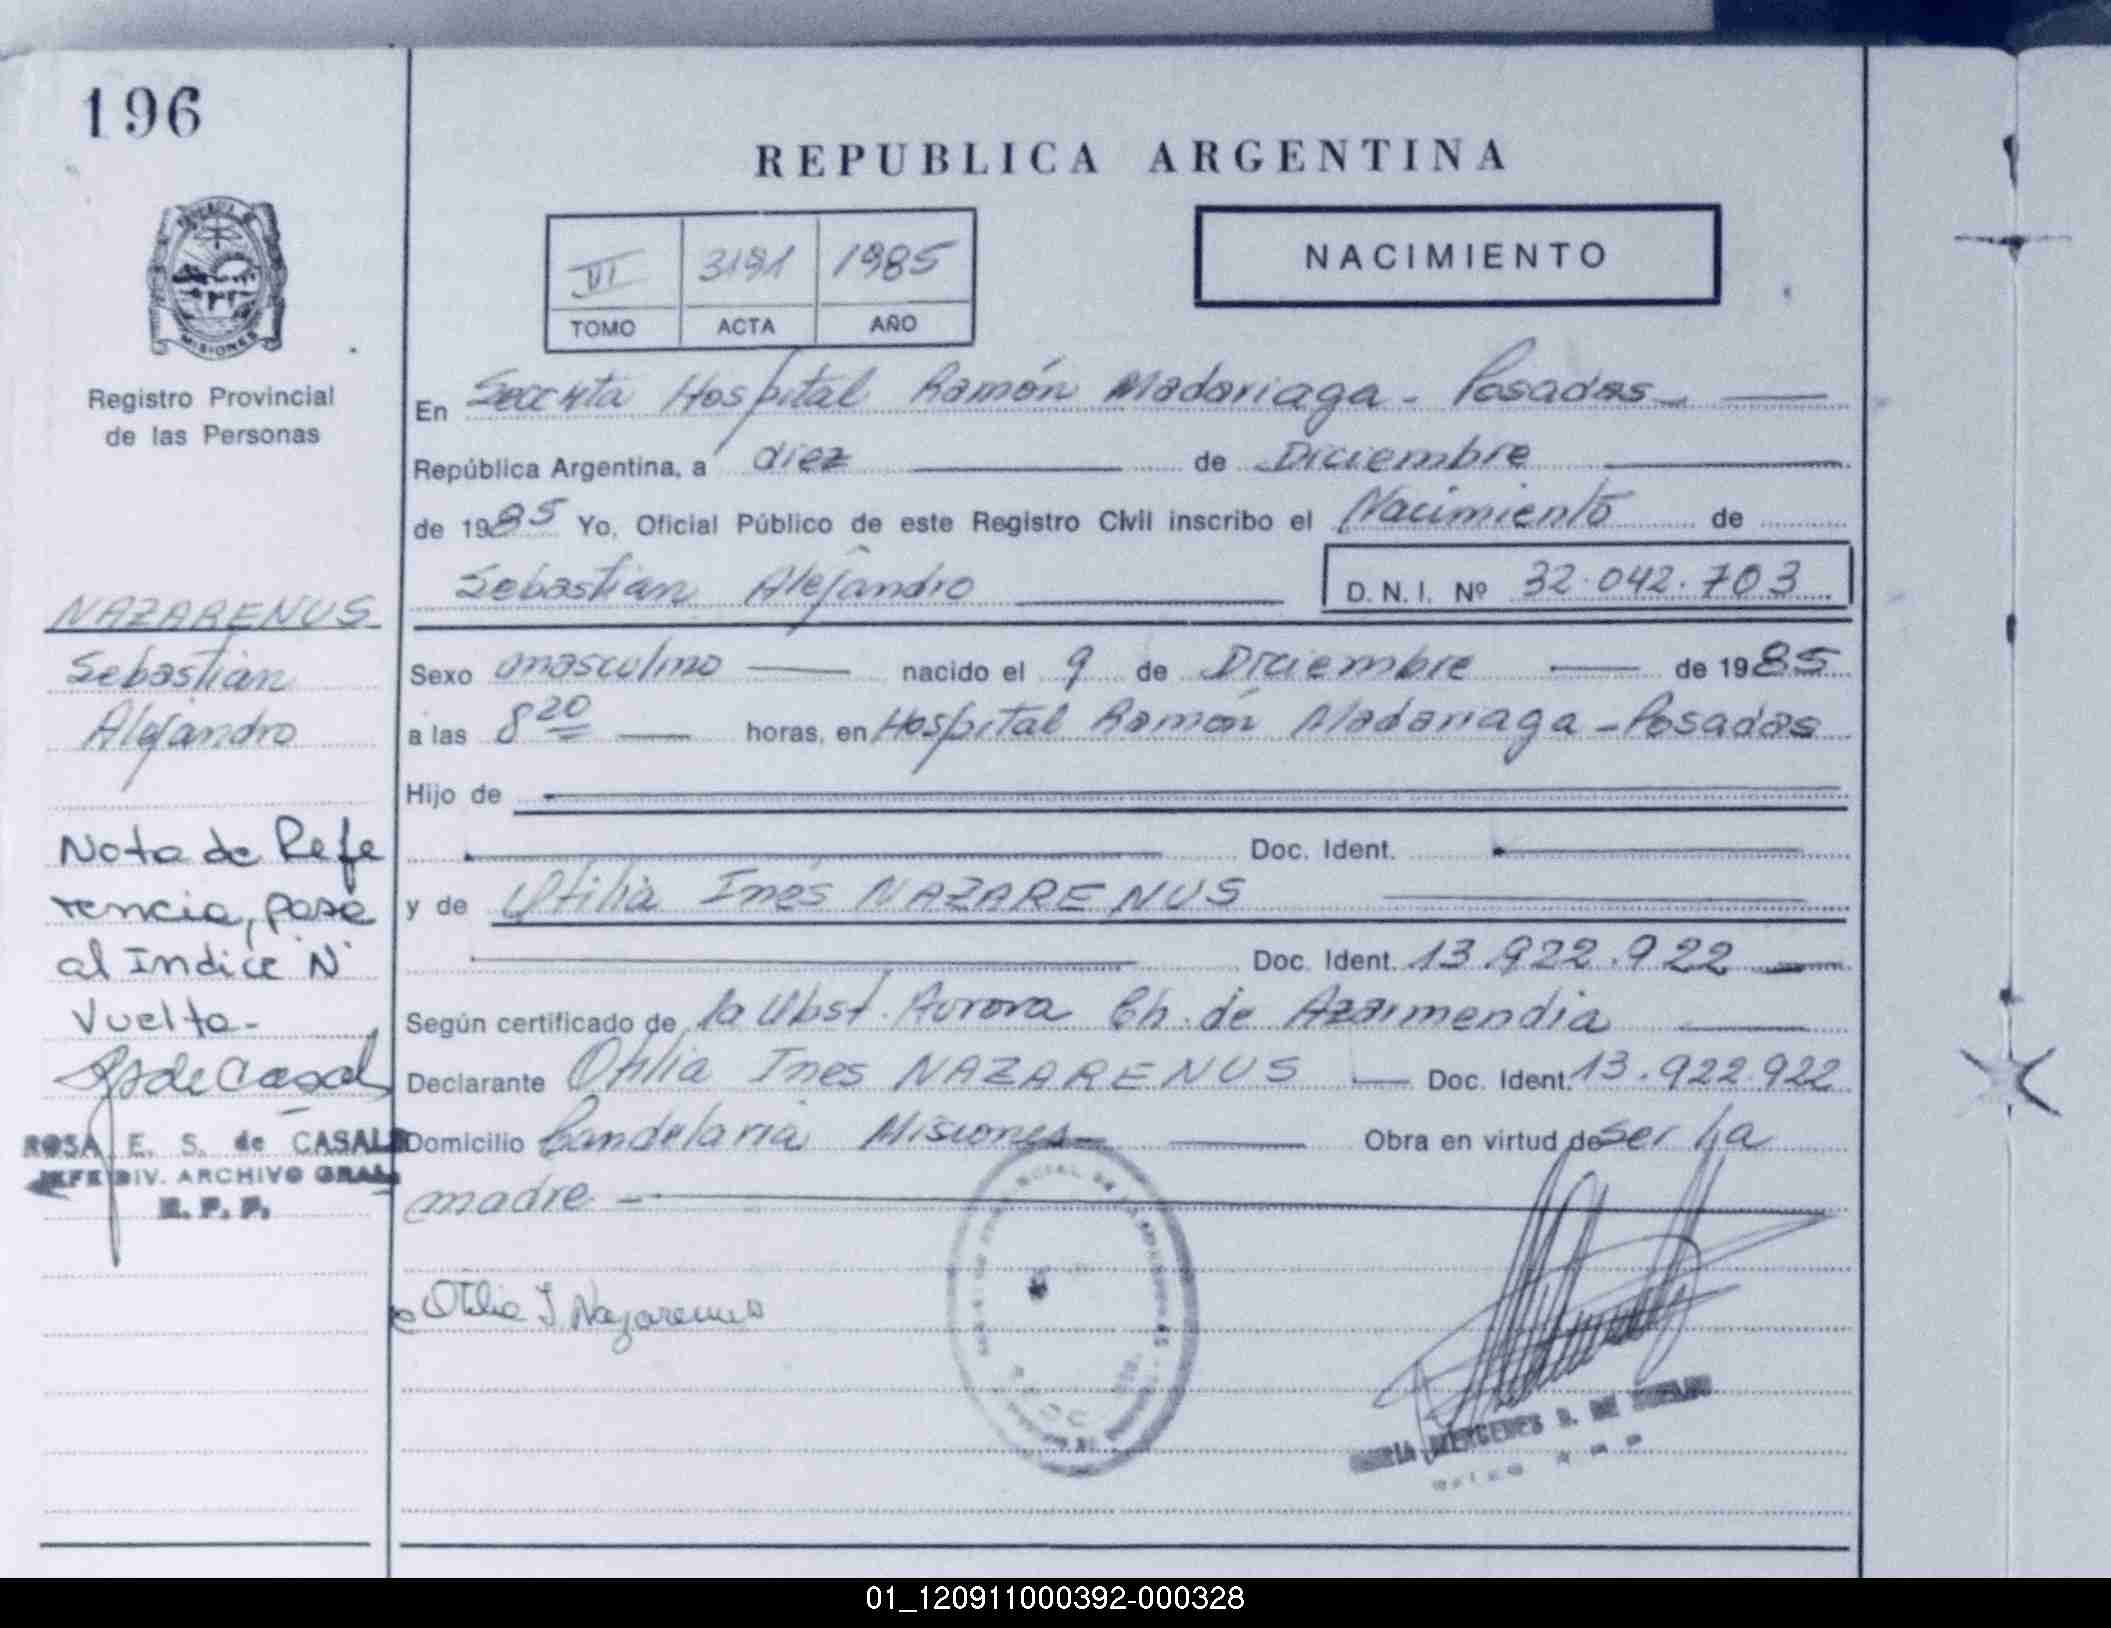 196
REPUBLICA ARGENTINA
VI 3191 1985
TOMO ACTA AÑO
NACIMIENTO
MISIONES
Registro Provincial
de las Personas
En Secc 4ta Hospital Ramón Madariaga - Posadas
República Argentina, a diez de Diciembre
de 1985 Yo, Oficial Público de este Registro Civil inscribo el Nacimiento de
Sebastian Alejandro D.N.I. Nº 32.042.703
NAZARENUS
Sebastian
Alejandro
Sexo masculino nacido el 9 de Diciembre de 1985
a las 8 20 horas, en Hospital Ramón Madariaga - Posadas
Hijo de
Doc. Ident.
y de Otilia Inés NAZARENUS
Doc. Ident. 13.922.922
Según certificado de la Obst. Aurora Ch. de Azarmendia
Declarante Otilia Ines NAZARENUS Doc. Ident. 13.922.922
Domicilio Candelaria Misiones Obra en virtud de ser la
madre
Nota de Refe
rencia, pasa
al Indice "N"
Vuelta-
RS de Casals
ROSA E. S. de CASALS
JEFE DIV. ARCHIVO GRAL
R. P. P.
Otilia I. Nazarenus
MERCEDES
01_120911000392-000328